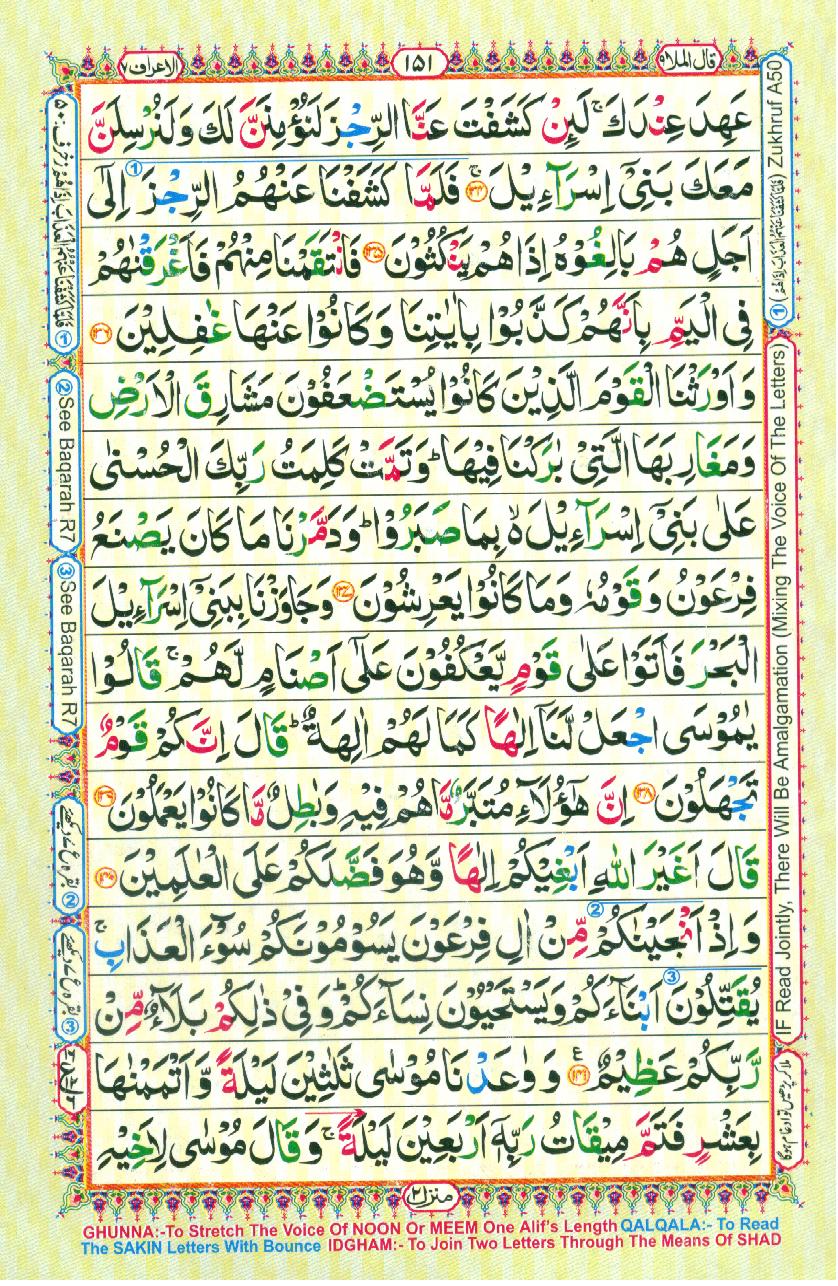 قال الملاه
١٥١
الاعراف٧
عَهِدَ عِنْدَكَ ۚ لَئِنْ كَشَفْتَ عَنَّا الرِّجْزَ لَنُؤْمِنَنَّ لَكَ وَلَنُرْسِلَنَّ
مَعَكَ بَنِیْۤ اِسْرَآءِیْلَ ۚ ﴿۱۳۴﴾ فَلَمَّا كَشَفْنَا عَنْهُمُ الرِّجْزَ اِلٰۤی
اَجَلٍ هُمْ بَالِغُوْهُ اِذَا هُمْ یَنْكُثُوْنَ ﴿۱۳۵﴾ فَانْتَقَمْنَا مِنْهُمْ فَاَغْرَقْنٰهُمْ
فِی الْیَمِّ بِاَنَّهُمْ كَذَّبُوْا بِاٰیٰتِنَا وَكَانُوْا عَنْهَا غٰفِلِیْنَ ﴿۱۳۶﴾
وَاَوْرَثْنَا الْقَوْمَ الَّذِیْنَ كَانُوْا یُسْتَضْعَفُوْنَ مَشَارِقَ الْاَرْضِ
وَمَغَارِبَهَا الَّتِیْ بٰرَكْنَا فِیْهَا ؕ وَتَمَّتْ كَلِمَتُ رَبِّكَ الْحُسْنٰی
عَلٰی بَنِیْۤ اِسْرَآءِیْلَ ۙ۬ بِمَا صَبَرُوْا ؕ وَدَمَّرْنَا مَا كَانَ یَصْنَعُ
فِرْعَوْنُ وَقَوْمُهٗ وَمَا كَانُوْا یَعْرِشُوْنَ ﴿۱۳۷﴾ وَجَاوَزْنَا بِبَنِیْۤ اِسْرَآءِیْلَ
الْبَحْرَ فَاَتَوْا عَلٰی قَوْمٍ یَّعْكُفُوْنَ عَلٰۤی اَصْنَامٍ لَّهُمْ ۚ قَالُوْا
یٰمُوْسَی اجْعَلْ لَّنَاۤ اِلٰهًا كَمَا لَهُمْ اٰلِهَةٌ ؕ قَالَ اِنَّكُمْ قَوْمٌ
تَجْهَلُوْنَ ﴿۱۳۸﴾ اِنَّ هٰۤؤُلَآءِ مُتَبَّرٌ مَّا هُمْ فِیْهِ وَبٰطِلٌ مَّا كَانُوْا یَعْمَلُوْنَ ﴿۱۳۹﴾
قَالَ اَغَیْرَ اللّٰهِ اَبْغِیْكُمْ اِلٰهًا وَّهُوَ فَضَّلَكُمْ عَلَی الْعٰلَمِیْنَ ﴿۱۴۰﴾
وَاِذْ اَنْجَیْنٰكُمْ مِّنْ اٰلِ فِرْعَوْنَ یَسُوْمُوْنَكُمْ سُوْٓءَ الْعَذَابِ ۚ
یُقَتِّلُوْنَ اَبْنَآءَكُمْ وَیَسْتَحْیُوْنَ نِسَآءَكُمْ ؕ وَفِیْ ذٰلِكُمْ بَلَآءٌ مِّنْ
رَّبِّكُمْ عَظِیْمٌ ﴿۱۴۱﴾ وَوٰعَدْنَا مُوْسٰی ثَلٰثِیْنَ لَیْلَةً وَّاَتْمَمْنٰهَا
بِعَشْرٍ فَتَمَّ مِیْقَاتُ رَبِّهٖۤ اَرْبَعِیْنَ لَیْلَةً ۚ وَقَالَ مُوْسٰی لِاَخِیْهِ
منزل٢
Zukhruf A50
①
IF Read Jointly, There Will Be Amalgamation (Mixing The Voice Of The Letters)
②See Baqarah R7
③See Baqarah R7
GHUNNA:-To Stretch The Voice Of NOON Or MEEM One Alif's Length QALQALA:- To Read
The SAKIN Letters With Bounce IDGHAM:- To Join Two Letters Through The Means Of SHAD